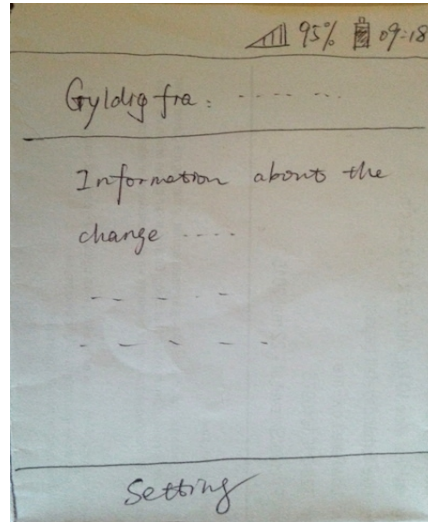 95% 09:18
Gyldig fra: ---- ---
Information about the
change ----
-- -- - -
- - - - -
Setting